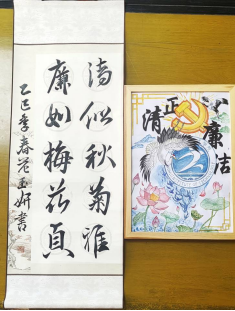 清似秋菊雅
廉如梅花贞
乙巳季春 玉妍书
清正廉洁